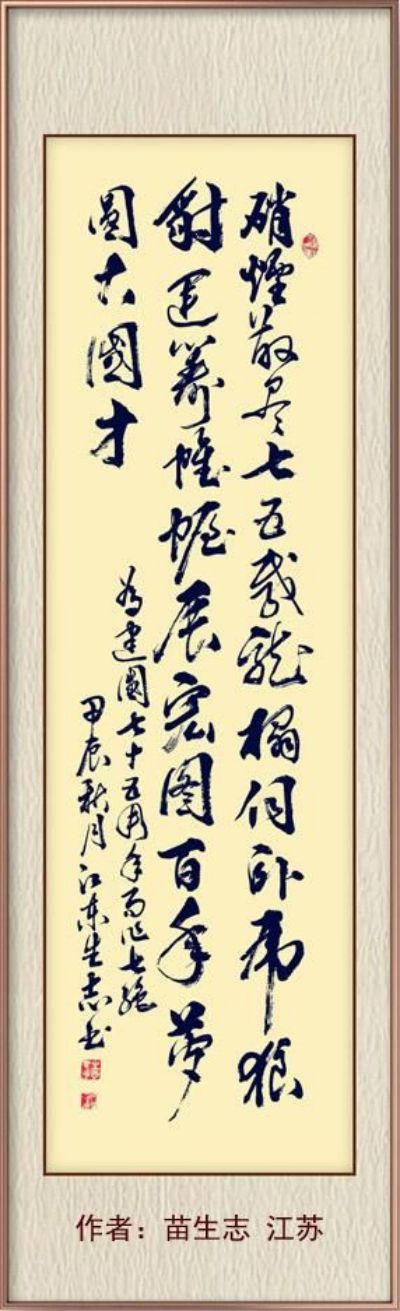 硝煙散尽七五载龍榻何卧虎狼
豺運籌帷幄展宏图百年夢
圆大國才
为建國七十五周年而作七绝
甲辰秋月江东生志书
作者：苗生志 江苏